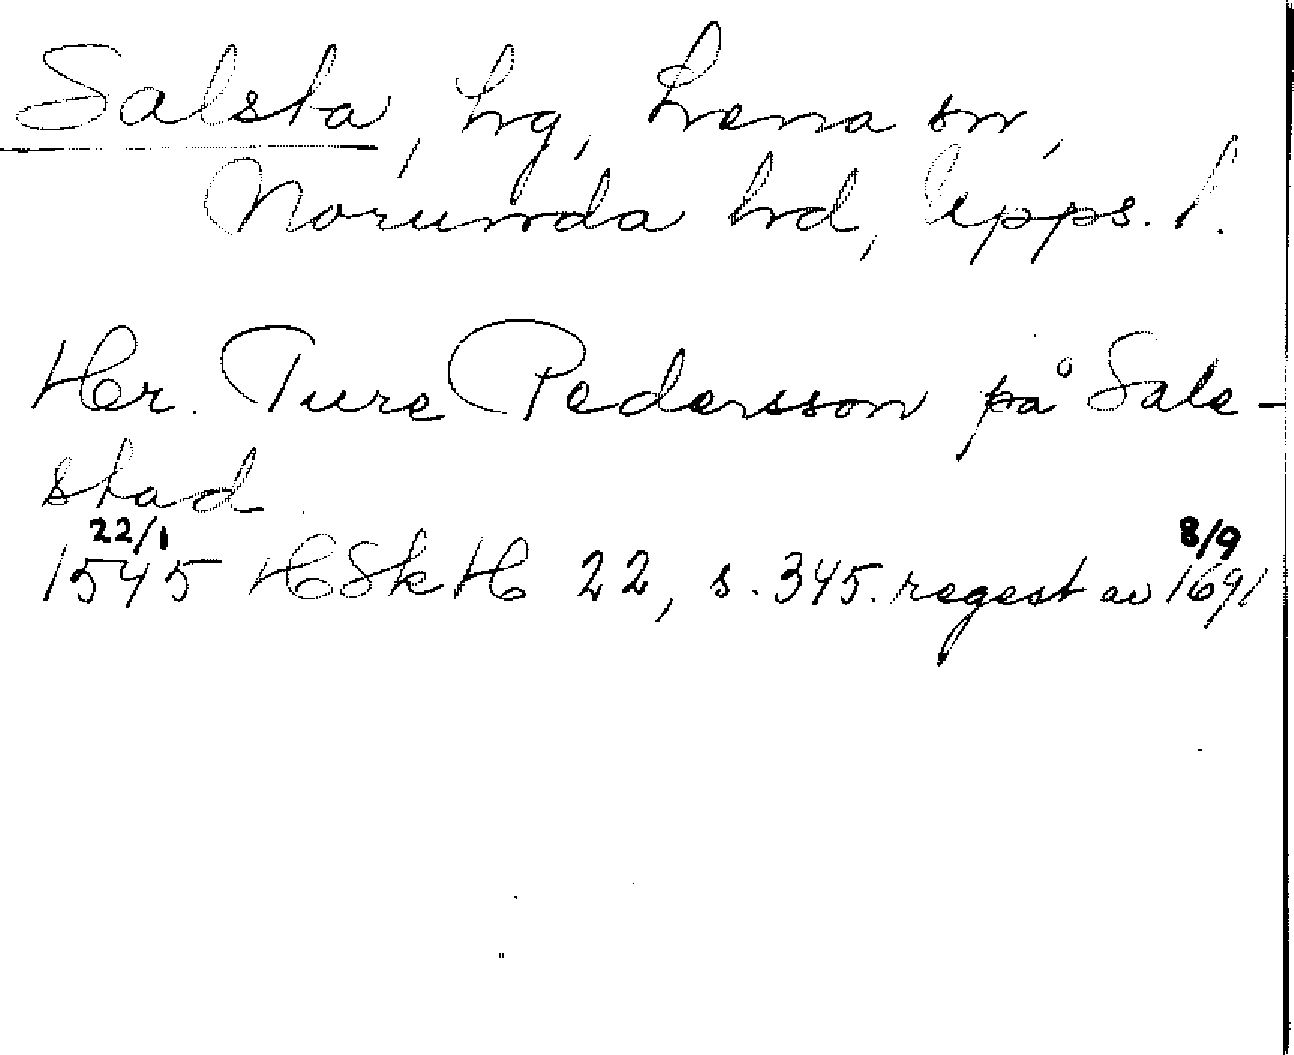 Salsta, hg, Lena sn,
Norunda hd, Upps. l.
Her. Ture Pedersson på Sale-
stad
22/1 8/9
1545 HSkH 22, s. 345. regest av 1691